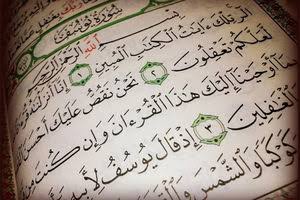 سُورَةُ يُوسُفَ
بِسْمِ اللَّهِ الرَّحْمَٰنِ الرَّحِيمِ
الٓر تِلْكَ ءَايَٰتُ الْكِتَٰبِ الْمُبِينِ ١ إِنَّآ أَنزَلْنَٰهُ
لَّعَلَّكُمْ تَعْقِلُونَ ٢ نَحْنُ نَقُصُّ عَلَيْكَ أَحْسَنَ
بِمَآ أَوْحَيْنَآ إِلَيْكَ هَٰذَا الْقُرْءَانَ وَإِن كُنتَ مِن
الْغَٰفِلِينَ ٣ إِذْ قَالَ يُوسُفُ لِأَبِيهِ
كَوْكَبًا وَالشَّمْسَ